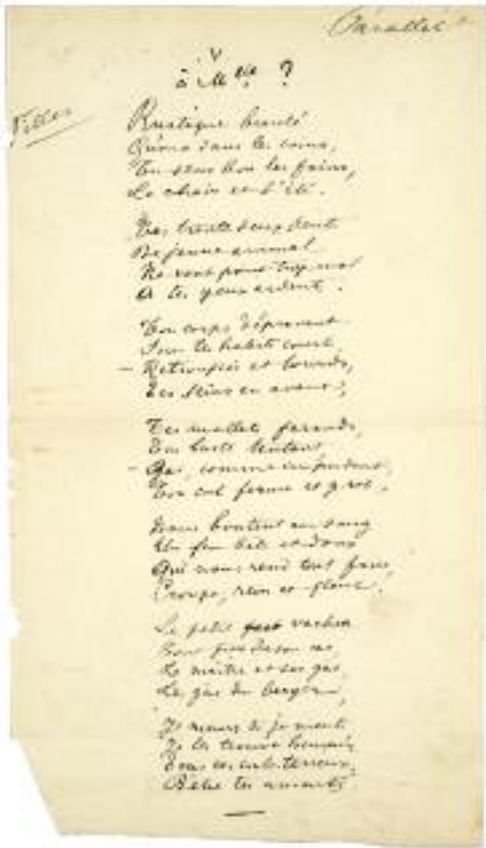 Parallel
à Mlle ?
Filles
Rustique beauté
Qu'on a dans les coins,
Tu sens bon les foins,
La chair et l'été.
Tes trente deux dents
De jeune animal
Ne vont point trop mal
A tes yeux ardents.
Ton corps dépravant
Sous tes habits courts,
– Retroussés et lourds,
Tes seins en avant,
Tes mollets farauds,
Ton buste tentant
– Gai, comme impudent,
Ton cul ferme et gros,
Nous boutent au sang
Un feu bête et doux
Qui nous rend tout fous,
Croupe, rein et flanc.
Le petit vacher
Tout fier de son cas,
Le maître et ses gas,
Les gas du berger,
Je meurs si je mens
Je les trouve heureux
Tous ces culs-terreux,
D'être tes amants